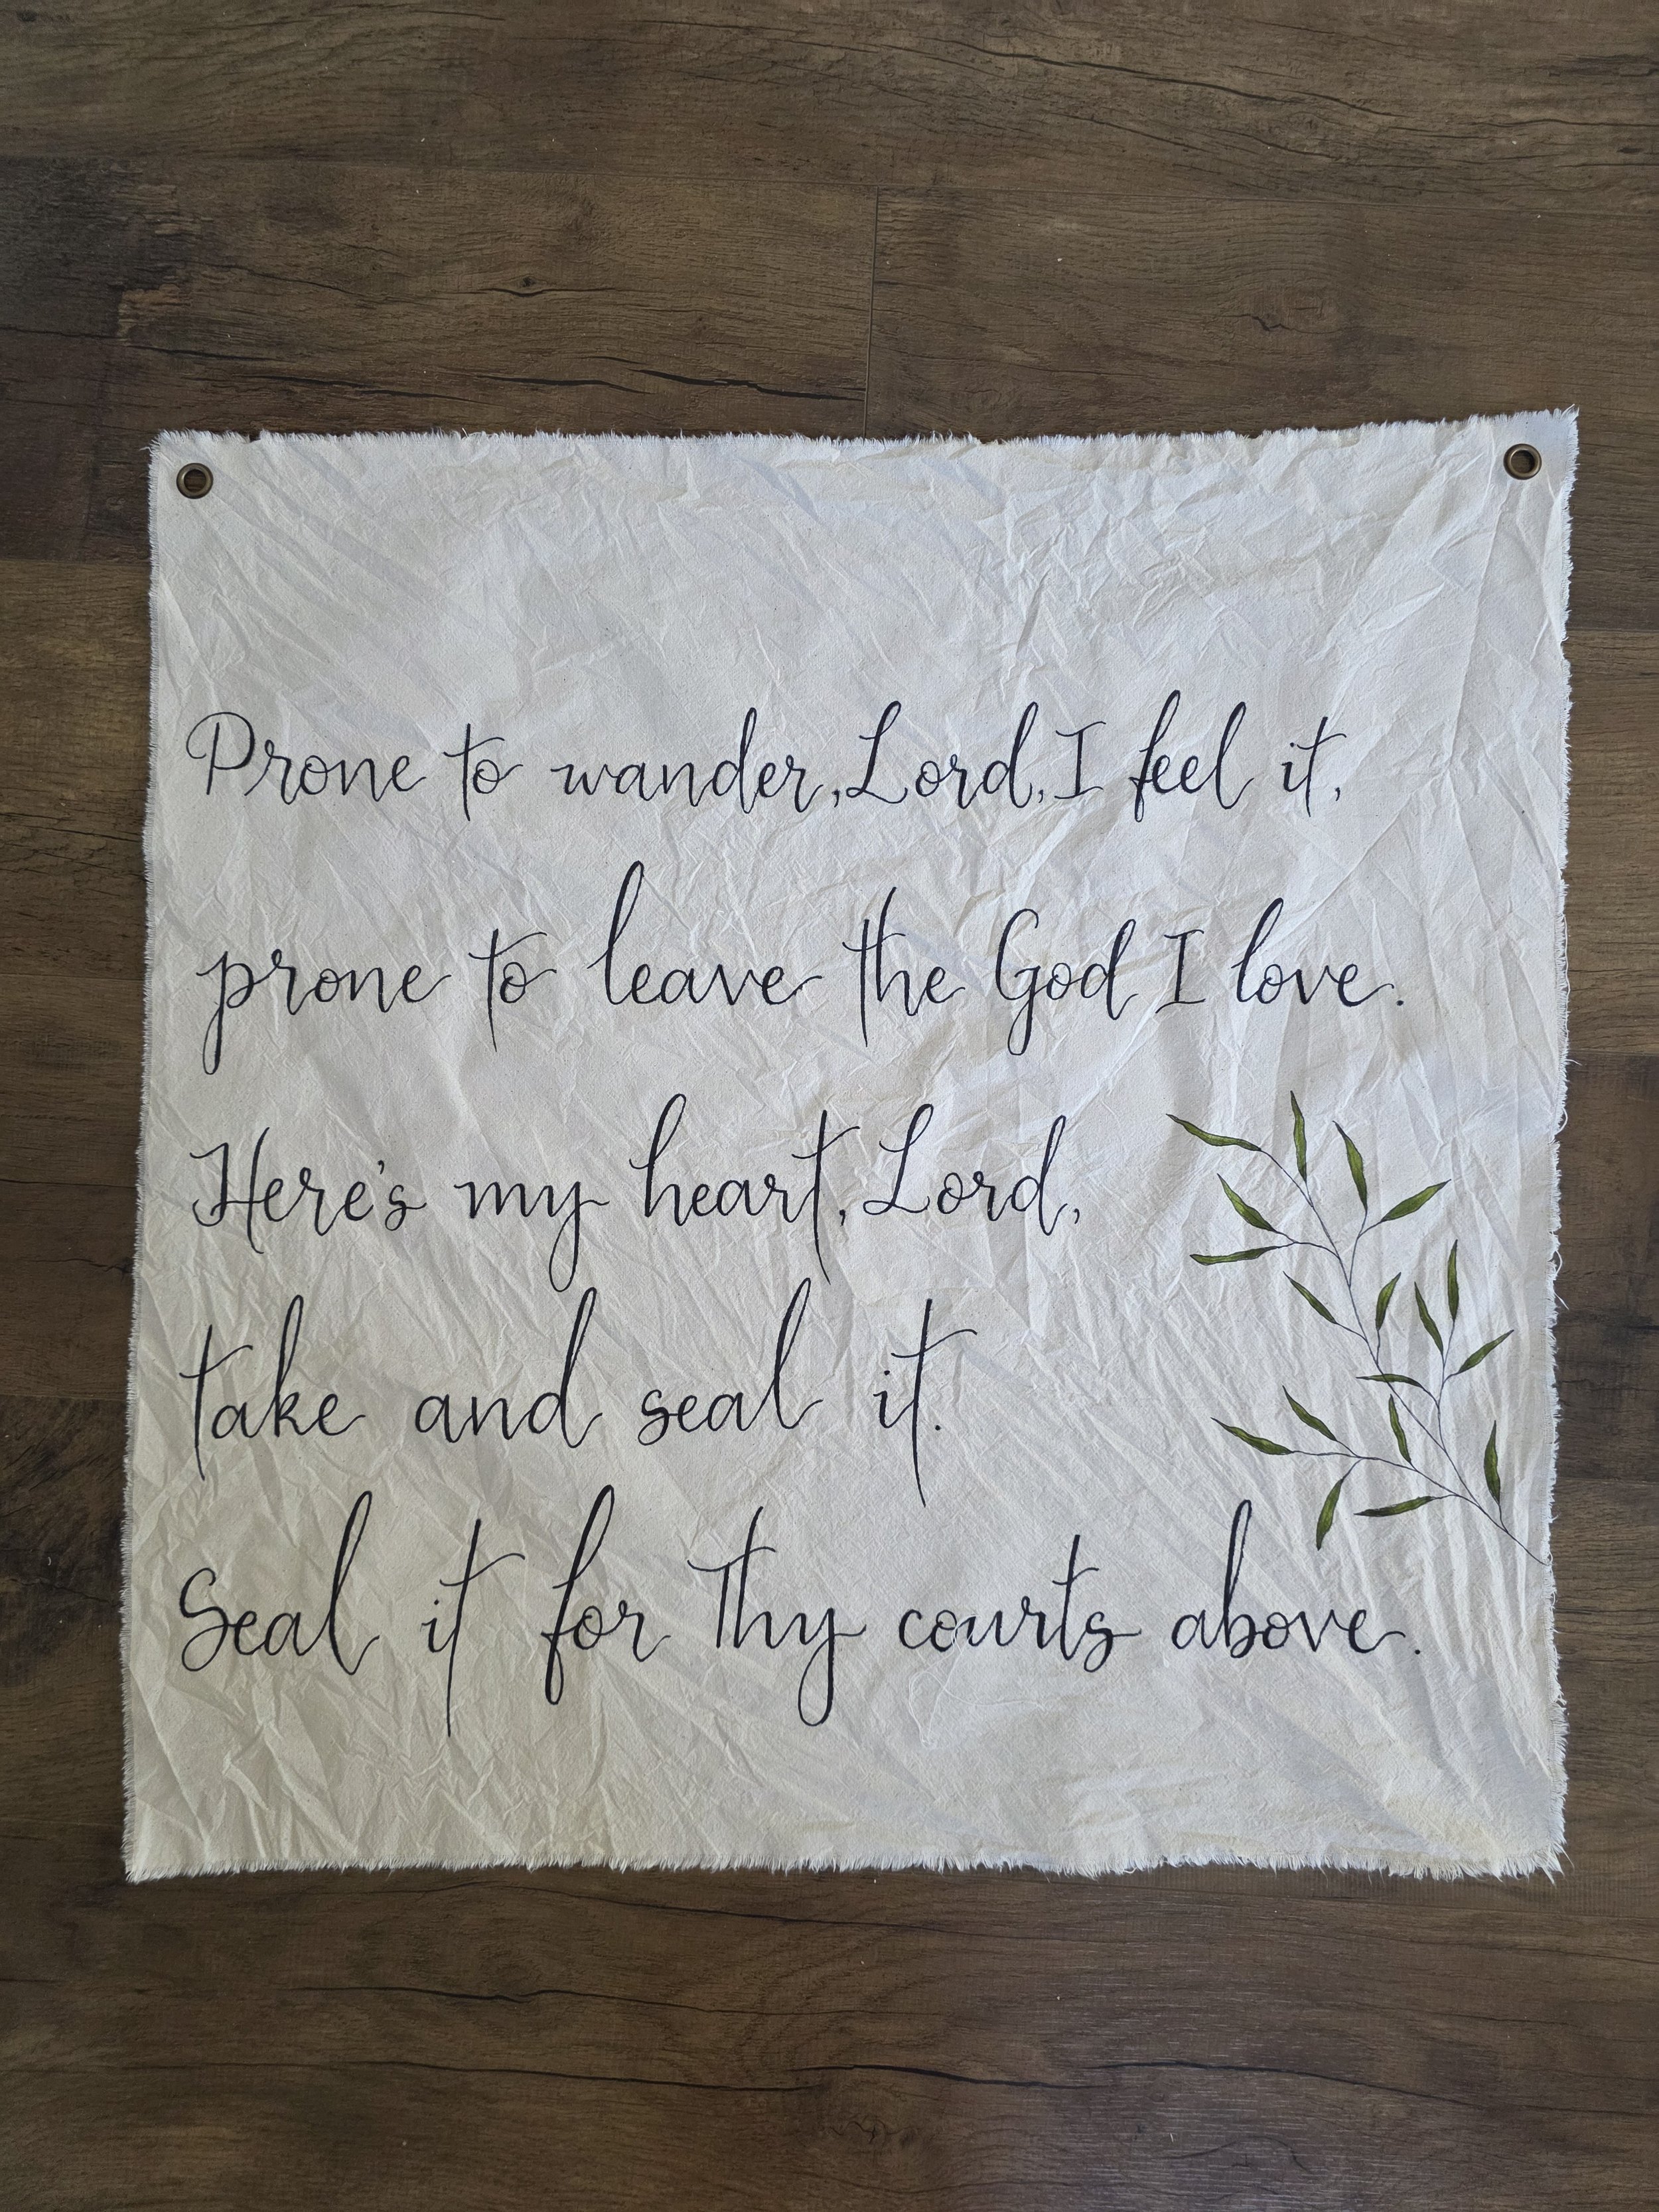 Prone to wander, Lord, I feel it,
prone to leave the God I love.
Here's my heart, Lord,
take and seal it.
Seal it for Thy courts above.